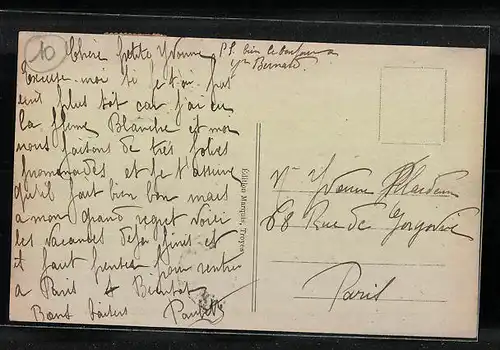 10
Chère petite Yvonne
Excuse-moi si je t'ai pas
écrit plus tôt car j'ai eu
la flemme Blanche et moi
nous faisons de très jolies
promenades et je t'assure
qu'il fait bien bon mais
a mon grand regret voici
les vacances déja finies et
il faut penser pour rentrer
a Paris A Bientot
Bons baisers
P.S. bien le bonjour a
Bernard.
Edition Marquis, Troyes
Yvonne
68 Rue de
Paris